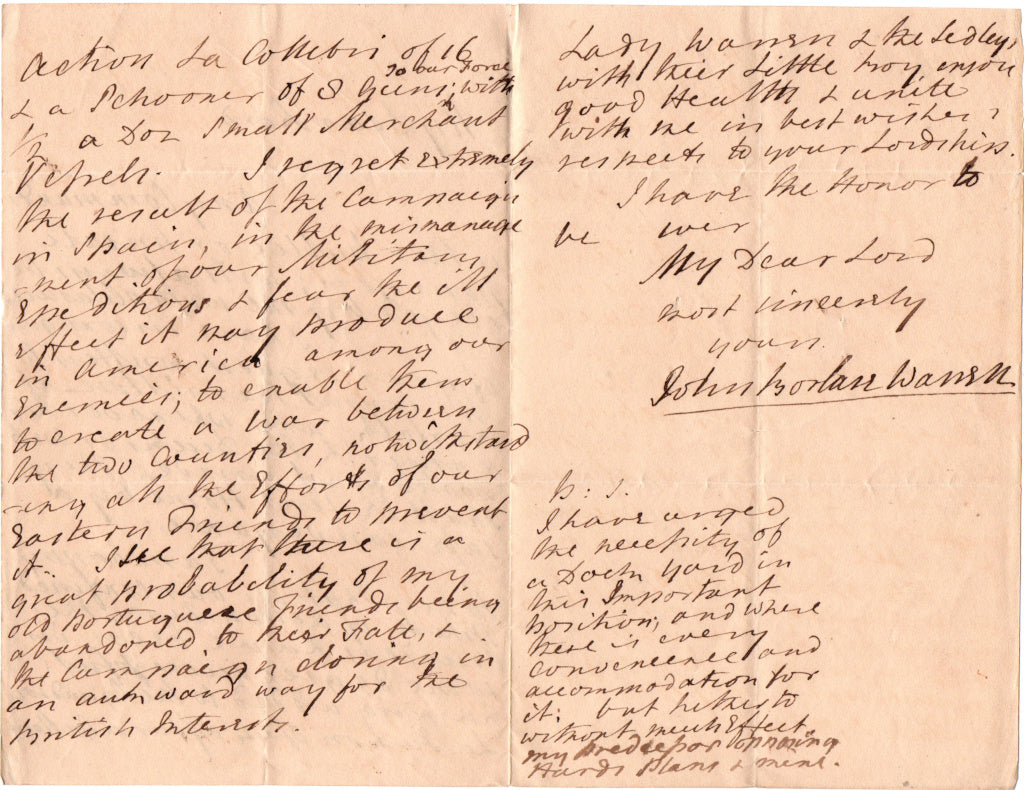 Action La Collibri of 16
to our Force
& a Schooner of 8 Guns, with
1/2 a Doz Small Merchant
Vessels. I regret extremely
the result of the Campaign
in Spain, in the mismanage
-ment of our Military
Expeditions & fear the ill
Effect it may produce
in America among our
Enemies; to enable them
to create a war between
the two Counties, nothwithstand
-ing all the Efforts of our
Eastern Friends to prevent
it. I see that there is a
great probability of my
old Portuguese Friends being
abandoned to their Fate, &
the Campaign closing in
an aukward way for the
British Interests.
Lady Warren & the Sedleys
with their Little Boy enjoy
good Health & unite
with me in best wishes &
respects to your Lordship.
I have the Honor to
be ever
My Dear Lord
most sincerely
yours.
John Borlase Warren
P: S.
I have urged
the necessity of
a Dock yard in
this Important
position, and where
there is every
conveneence and
accommodation for
it; but hitherto
without much Effect
my predecessor opposing
Hards Plans & mine.